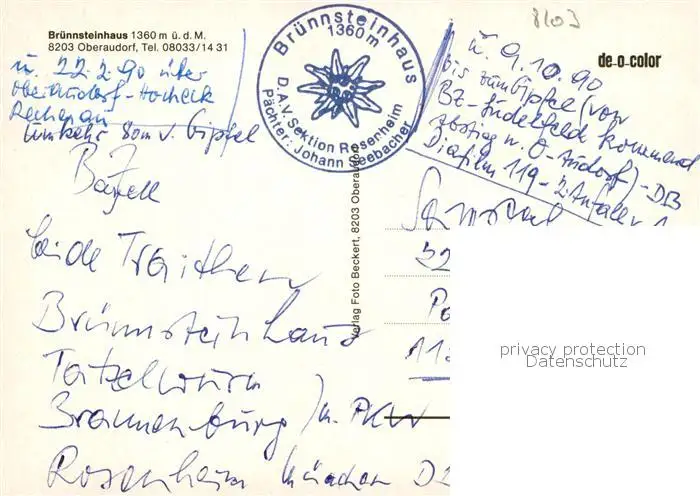 Brünnsteinhaus 1360 m ü. d. M.
8203 Oberaudorf, Tel. 08033/14 31
u. 22.2.90 über
Oberaudorf-Hocheck
Rechenau
Umkehr 80m v. Gipfel
Brünnsteinhaus
1360m
D.A.V. Sektion Rosenheim
Pächter: Johann Seebacher
8203
de-o-color
u. 9.10.90
bis zum Gipfel (von
BZ-Sudelfeld kommend
Abstieg n. O-Audorf)-DB
Diafilm 119-
BZ
beide Traithen
Brünnsteinhaus
Tatzelwurm
Brannenburg) m. PKW
Rosenheim München D
Verlag Foto Beckert, 8203 Oberaudorf
privacy protection
Datenschutz